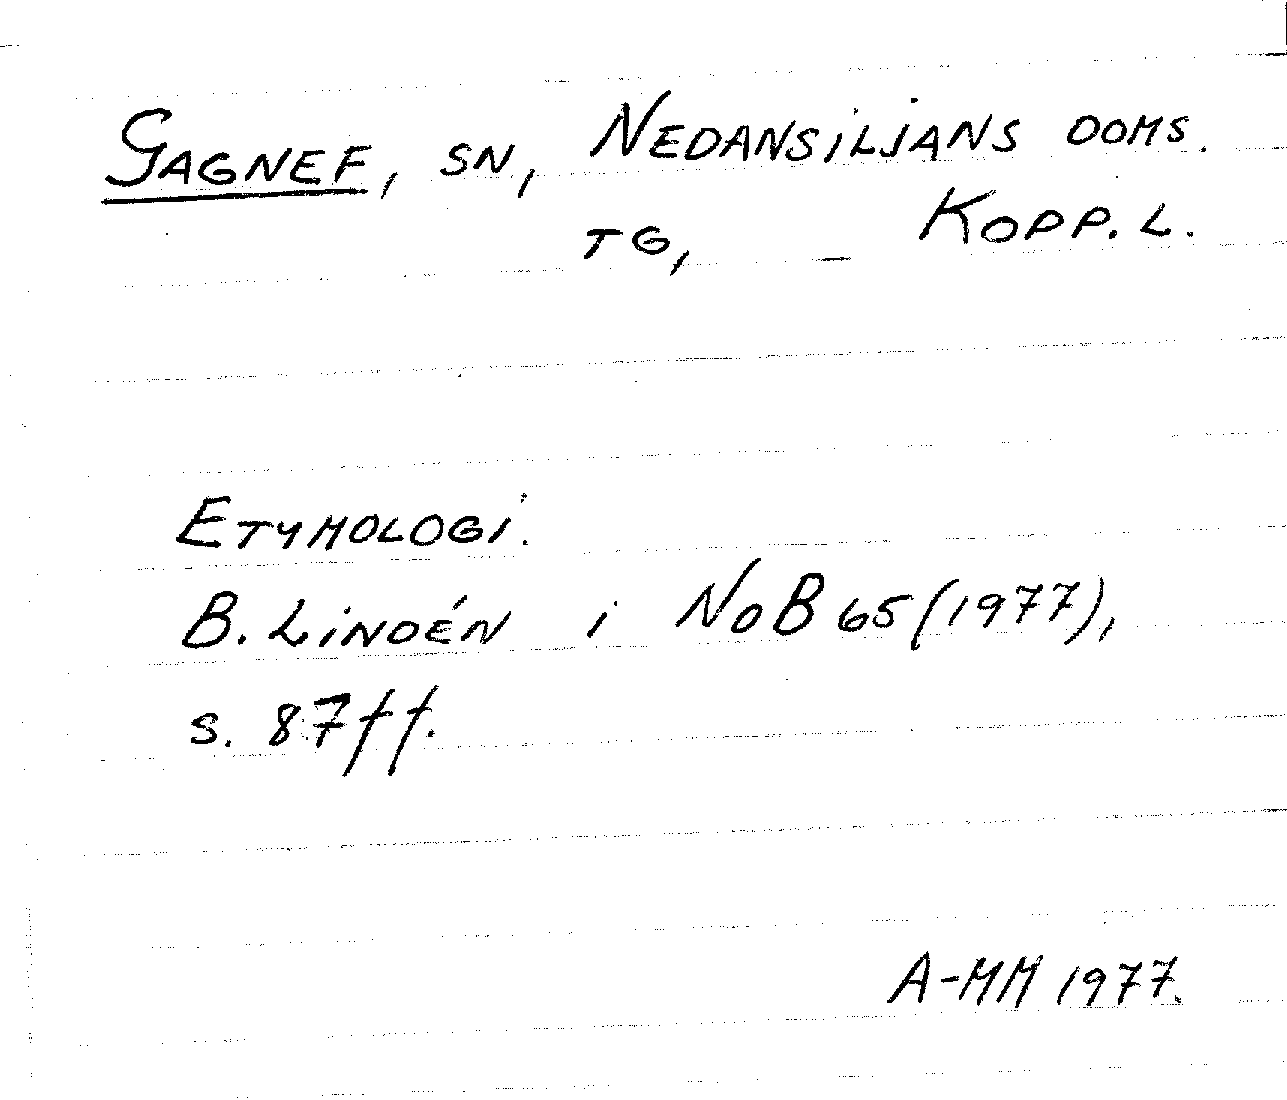 GAGNEF, SN, NEDANSILJANS DOMS.
TG, KOPP. L.
ETYMOLOGI.
B. LINDÉN i NoB 65 (1977),
s. 87ff.
A-MM 1977.